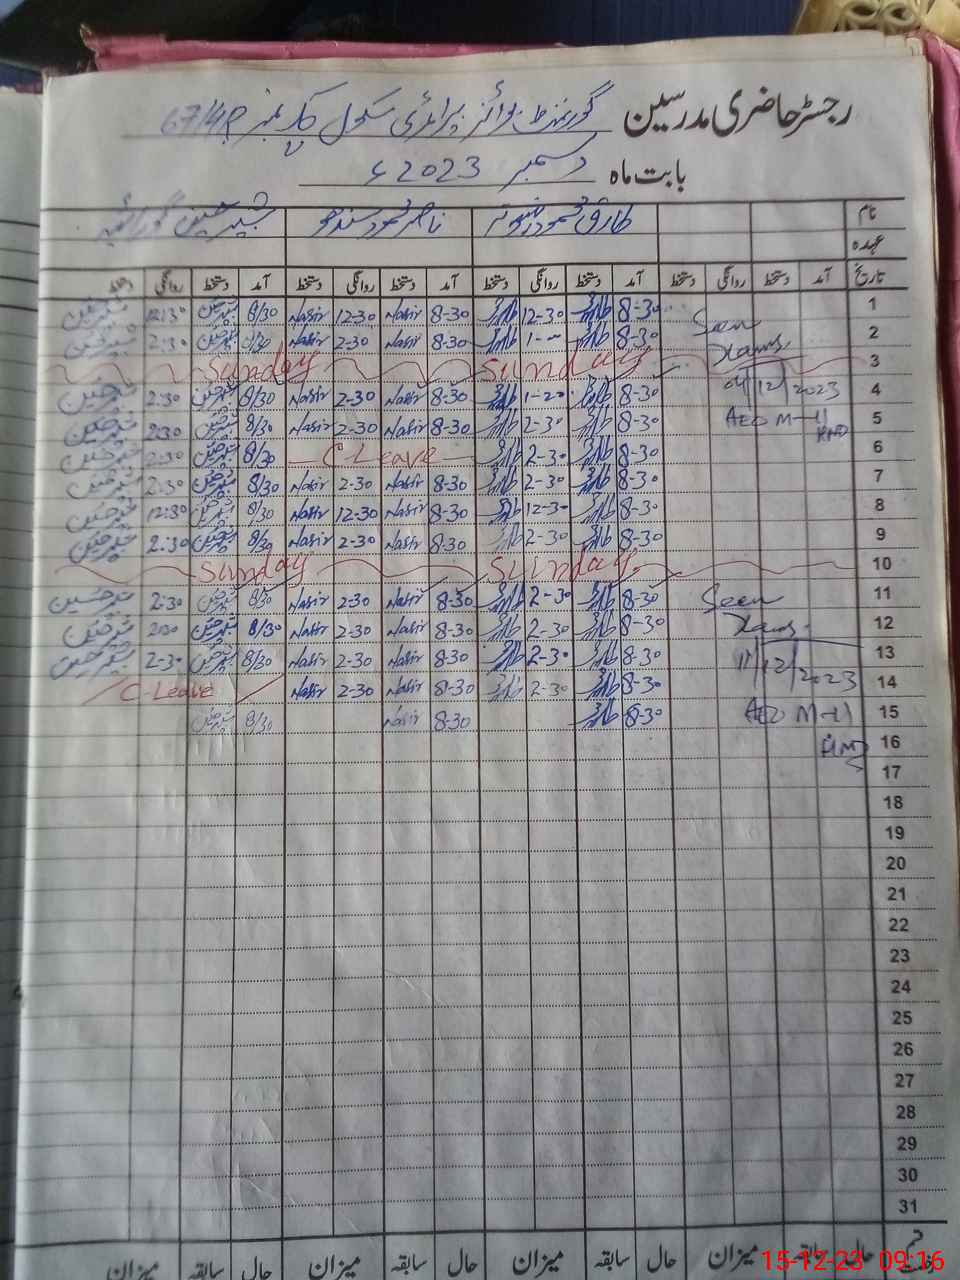 رجسٹر حاضری مدرسین گورنمنٹ بوائز پرائمری سکول
بابت ماہ دسمبر 2023ء
نام طارق محمود ناصر محمود سندھو شبیر حسین گورائیہ
عہدہ
تاریخ آمد دستخط روانگی دستخط آمد دستخط روانگی دستخط آمد دستخط روانگی دستخط آمد دستخط روانگی دستخط
1 8-30 طارق 12-30 طارق 8-30 Nasir 12-30 Nasir 8/30 شبیر حسین 12:30 شبیر حسین
2 Seen 8-30 طارق 1-00 طارق 8-30 Nasir 2-30 Nasir 8/30 شبیر حسین 2:30 شبیر حسین
3 Sunday Sunday
4 04/12/2023 8-30 طارق 1-20 طارق 8-30 Nasir 2-30 Nasir 8/30 شبیر حسین 2:30 شبیر حسین
5 AEO M-U 8-30 طارق 2-30 طارق 8-30 Nasir 2-30 Nasir 8/30 شبیر حسین 2:30 شبیر حسین
6 8-30 طارق 2-30 طارق C-Leave 8/30 شبیر حسین 2:30 شبیر حسین
7 8-30 طارق 2-30 طارق 8-30 Nasir 2-30 Nasir 8/30 شبیر حسین 2:30 شبیر حسین
8 8-30 طارق 12-30 طارق 8-30 Nasir 12-30 Nasir 8/30 شبیر حسین 12:30 شبیر حسین
9 8-30 طارق 2-30 طارق 8-30 Nasir 2-30 Nasir 8/30 شبیر حسین 2:30 شبیر حسین
10 Sunday Sunday
11 Seen 8-30 طارق 2-30 طارق 8-30 Nasir 2-30 Nasir 8/30 شبیر حسین 2-30 شبیر حسین
12 8-30 طارق 2-30 طارق 8-30 Nasir 2-30 Nasir 8/30 شبیر حسین 2:30 شبیر حسین
13 11/12/2023 8-30 طارق 2-30 طارق 8-30 Nasir 2-30 Nasir 8/30 شبیر حسین 2-30 شبیر حسین
14 8-30 طارق 2-30 طارق 8-30 Nasir 2-30 Nasir C-Leave
15 AEO M-U 8-30 طارق 8-30 Nasir 8/30 شبیر حسین
16
17
18
19
20
21
22
23
24
25
26
27
28
29
30
31
حال سابقہ میزان حال سابقہ میزان حال سابقہ میزان حال سابقہ میزان
15-12-23 09:16